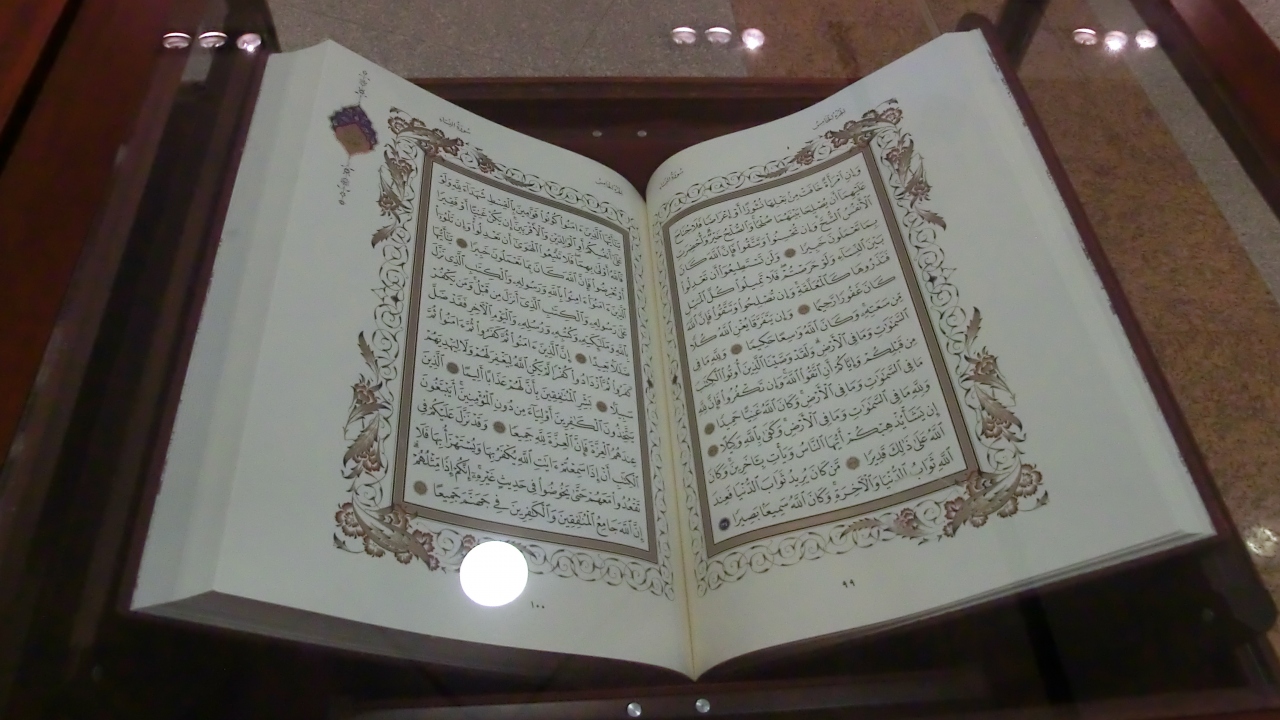 الجزء الخامس
سورة النساء
وَإِنِ ٱمْرَأَةٌ خَافَتْ مِنۢ بَعْلِهَا نُشُوزًا أَوْ إِعْرَاضًا فَلَا جُنَاحَ
عَلَيْهِمَآ أَن يُصْلِحَا بَيْنَهُمَا صُلْحًا وَٱلصُّلْحُ خَيْرٌ وَأُحْضِرَتِ
ٱلْأَنفُسُ ٱلشُّحَّ وَإِن تُحْسِنُوا۟ وَتَتَّقُوا۟ فَإِنَّ ٱللَّهَ كَانَ
بِمَا تَعْمَلُونَ خَبِيرًا وَلَن تَسْتَطِيعُوٓا۟ أَن تَعْدِلُوا۟
بَيْنَ ٱلنِّسَآءِ وَلَوْ حَرَصْتُمْ فَلَا تَمِيلُوا۟ كُلَّ ٱلْمَيْلِ
فَتَذَرُوهَا كَٱلْمُعَلَّقَةِ وَإِن تُصْلِحُوا۟ وَتَتَّقُوا۟ فَإِنَّ ٱللَّهَ
كَانَ غَفُورًا رَّحِيمًا وَإِن يَتَفَرَّقَا يُغْنِ ٱللَّهُ كُلًّا
مِّن سَعَتِهِۦ وَكَانَ ٱللَّهُ وَٰسِعًا حَكِيمًا وَلِلَّهِ مَا فِى
ٱلسَّمَٰوَٰتِ وَمَا فِى ٱلْأَرْضِ وَلَقَدْ وَصَّيْنَا ٱلَّذِينَ أُوتُوا۟ ٱلْكِتَٰبَ
مِن قَبْلِكُمْ وَإِيَّاكُمْ أَنِ ٱتَّقُوا۟ ٱللَّهَ وَإِن تَكْفُرُوا۟ فَإِنَّ لِلَّهِ
مَا فِى ٱلسَّمَٰوَٰتِ وَمَا فِى ٱلْأَرْضِ وَكَانَ ٱللَّهُ غَنِيًّا حَمِيدًا
وَلِلَّهِ مَا فِى ٱلسَّمَٰوَٰتِ وَمَا فِى ٱلْأَرْضِ وَكَفَىٰ بِٱللَّهِ وَكِيلًا
إِن يَشَأْ يُذْهِبْكُمْ أَيُّهَا ٱلنَّاسُ وَيَأْتِ بِـَٔاخَرِينَ وَكَانَ
ٱللَّهُ عَلَىٰ ذَٰلِكَ قَدِيرًا مَّن كَانَ يُرِيدُ ثَوَابَ ٱلدُّنْيَا فَعِندَ
ٱللَّهِ ثَوَابُ ٱلدُّنْيَا وَٱلْـَٔاخِرَةِ وَكَانَ ٱللَّهُ سَمِيعًۢا بَصِيرًا
٩٩
الجزء الخامس
سورة النساء
يَٰٓأَيُّهَا ٱلَّذِينَ ءَامَنُوا۟ كُونُوا۟ قَوَّٰمِينَ بِٱلْقِسْطِ شُهَدَآءَ لِلَّهِ وَلَوْ
عَلَىٰٓ أَنفُسِكُمْ أَوِ ٱلْوَٰلِدَيْنِ وَٱلْأَقْرَبِينَ إِن يَكُنْ غَنِيًّا أَوْ فَقِيرًا
فَٱللَّهُ أَوْلَىٰ بِهِمَا فَلَا تَتَّبِعُوا۟ ٱلْهَوَىٰٓ أَن تَعْدِلُوا۟ وَإِن تَلْوُۥٓا۟
أَوْ تُعْرِضُوا۟ فَإِنَّ ٱللَّهَ كَانَ بِمَا تَعْمَلُونَ خَبِيرًا يَٰٓأَيُّهَا
ٱلَّذِينَ ءَامَنُوٓا۟ ءَامِنُوا۟ بِٱللَّهِ وَرَسُولِهِۦ وَٱلْكِتَٰبِ ٱلَّذِى نَزَّلَ
عَلَىٰ رَسُولِهِۦ وَٱلْكِتَٰبِ ٱلَّذِىٓ أَنزَلَ مِن قَبْلُ وَمَن يَكْفُرْ
بِٱللَّهِ وَمَلَٰٓئِكَتِهِۦ وَكُتُبِهِۦ وَرُسُلِهِۦ وَٱلْيَوْمِ ٱلْـَٔاخِرِ فَقَدْ ضَلَّ
ضَلَٰلًۢا بَعِيدًا إِنَّ ٱلَّذِينَ ءَامَنُوا۟ ثُمَّ كَفَرُوا۟ ثُمَّ ءَامَنُوا۟ ثُمَّ
كَفَرُوا۟ ثُمَّ ٱزْدَادُوا۟ كُفْرًا لَّمْ يَكُنِ ٱللَّهُ لِيَغْفِرَ لَهُمْ وَلَا لِيَهْدِيَهُمْ
سَبِيلًۢا بَشِّرِ ٱلْمُنَٰفِقِينَ بِأَنَّ لَهُمْ عَذَابًا أَلِيمًا ٱلَّذِينَ
يَتَّخِذُونَ ٱلْكَٰفِرِينَ أَوْلِيَآءَ مِن دُونِ ٱلْمُؤْمِنِينَ أَيَبْتَغُونَ
عِندَهُمُ ٱلْعِزَّةَ فَإِنَّ ٱلْعِزَّةَ لِلَّهِ جَمِيعًا وَقَدْ نَزَّلَ عَلَيْكُمْ فِى
ٱلْكِتَٰبِ أَنْ إِذَا سَمِعْتُمْ ءَايَٰتِ ٱللَّهِ يُكْفَرُ بِهَا وَيُسْتَهْزَأُ بِهَا فَلَا
تَقْعُدُوا۟ مَعَهُمْ حَتَّىٰ يَخُوضُوا۟ فِى حَدِيثٍ غَيْرِهِۦٓ إِنَّكُمْ إِذًا مِّثْلُهُمْ
إِنَّ ٱللَّهَ جَامِعُ ٱلْمُنَٰفِقِينَ وَٱلْكَٰفِرِينَ فِى جَهَنَّمَ جَمِيعًا
١٠٠